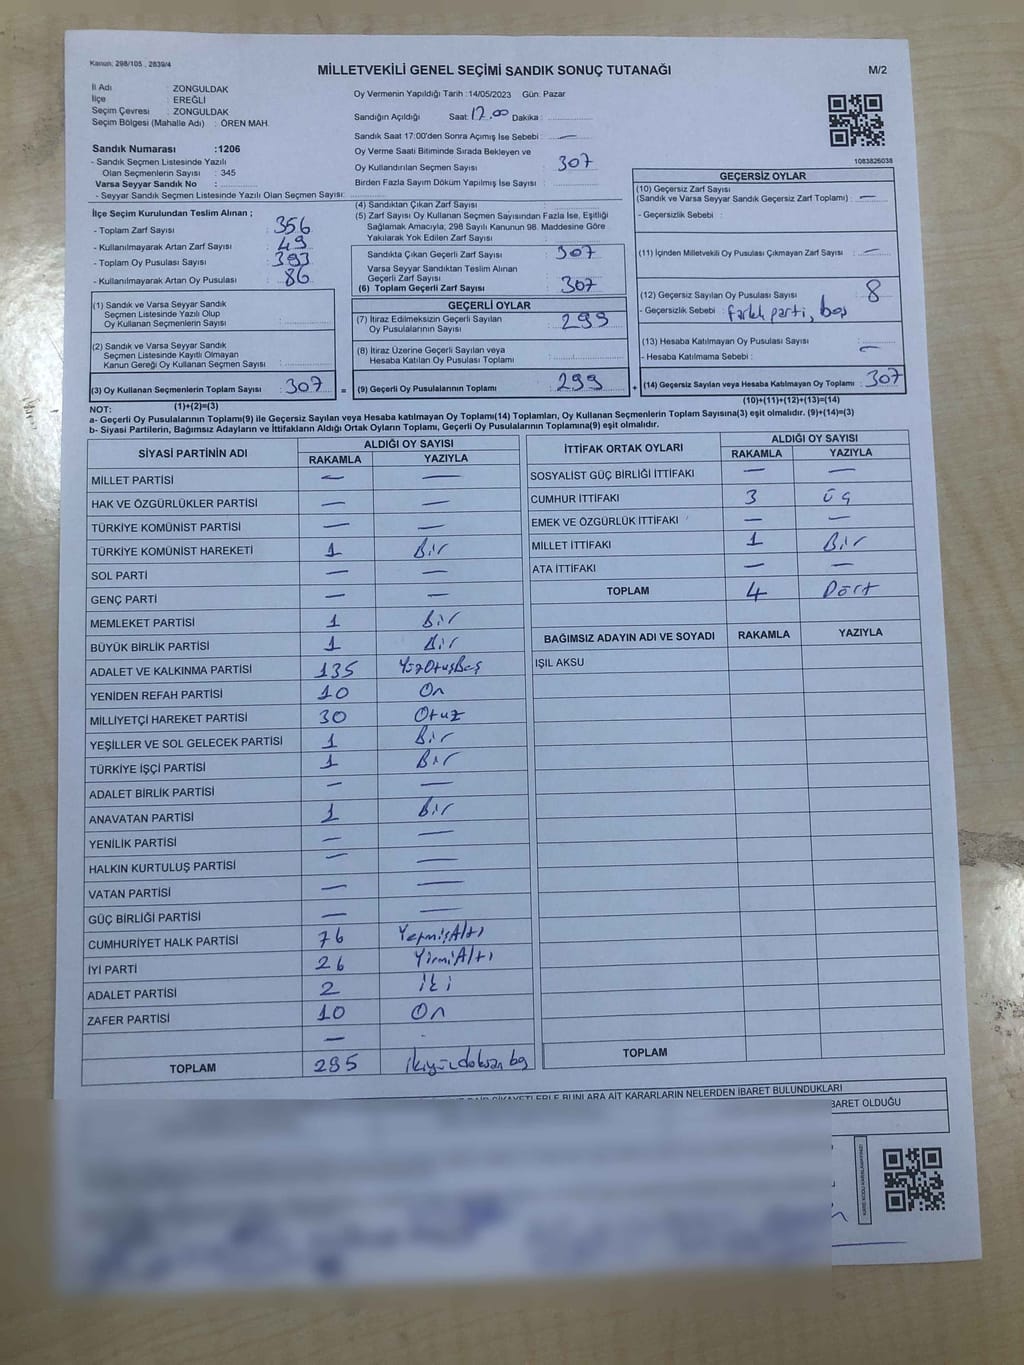 Kanun: 298/105 , 2839/4
MİLLETVEKİLİ GENEL SEÇİMİ SANDIK SONUÇ TUTANAĞI
M/2
İl Adı : ZONGULDAK
İlçe : EREĞLİ
Seçim Çevresi : ZONGULDAK
Seçim Bölgesi (Mahalle Adı) : ÖREN MAH.
Sandık Numarası :1206
- Sandık Seçmen Listesinde Yazılı
Olan Seçmenlerin Sayısı : 345
Varsa Seyyar Sandık No :
- Seyyar Seçmen Listesinde Yazılı Olan Seçmen Sayısı:
Oy Vermenin Yapıldığı Tarih :14/05/2023 Gün: Pazar
Sandığın Açıldığı Saat: 17.00 Dakika :
Sandık Saat 17:00'den Sonra Açımış İse Sebebi : —
Oy Verme Saati Bitiminde Sırada Bekleyen ve
Oy Kullandırılan Seçmen Sayısı : 307
Birden Fazla Sayım Döküm Yapılmış İse Sayısı :
1083826038
İlçe Seçim Kurulundan Teslim Alınan ;
- Toplam Zarf Sayısı : 356
- Kullanılmayarak Artan Zarf Sayısı : 49
- Toplam Oy Pusulası Sayısı : 393
- Kullanılmayarak Artan Oy Pusulası : 86
(1) Sandık ve Varsa Seyyar Sandık
Seçmen Listesinde Yazılı Olup
Oy Kullanan Seçmenlerin Sayısı :
(2) Sandık ve Varsa Seyyar Sandık
Seçmen Listesinde Kayıtlı Olmayan
Kanun Gereği Oy Kullanan Seçmen Sayısı :
(3) Oy Kullanan Seçmenlerin Toplam Sayısı : 307 =
(1)+(2)=(3)
(4) Sandıktan Çıkan Zarf Sayısı :
(5) Zarf Sayısı Oy Kullanan Seçmen Sayısından Fazla İse, Eşitliği
Sağlamak Amacıyla; 298 Sayılı Kanunun 98. Maddesine Göre
Yakılarak Yok Edilen Zarf Sayısı :
Sandıkta Çıkan Geçerli Zarf Sayısı : 307
Varsa Seyyar Sandıktan Teslim Alınan
Geçerli Zarf Sayısı :
(6) Toplam Geçerli Zarf Sayısı : 307
GEÇERLİ OYLAR
(7) İtiraz Edilmeksizin Geçerli Sayılan
Oy Pusulalarının Sayısı : 299
(8) İtiraz Üzerine Geçerli Sayılan veya
Hesaba Katılan Oy Pusulası Toplamı :
(9) Geçerli Oy Pusulalarının Toplamı : 299 +
GEÇERSİZ OYLAR
(10) Geçersiz Zarf Sayısı
(Sandık ve Varsa Seyyar Sandık Geçersiz Zarf Toplamı) : —
- Geçersizlik Sebebi :
(11) İçinden Milletvekili Oy Pusulası Çıkmayan Zarf Sayısı : —
(12) Geçersiz Sayılan Oy Pusulası Sayısı : 8
- Geçersizlik Sebebi : farklı parti, boş
(13) Hesaba Katılmayan Oy Pusulası Sayısı : —
- Hesaba Katılmama Sebebi :
(14) Geçersiz Sayılan veya Hesaba Katılmayan Oy Toplamı : 307
(10)+(11)+(12)+(13)=(14)
NOT:
a- Geçerli Oy Pusulalarının Toplamı(9) ile Geçersiz Sayılan veya Hesaba katılmayan Oy Toplamı(14) Toplamları, Oy Kullanan Seçmenlerin Toplam Sayısına(3) eşit olmalıdır. (9)+(14)=(3)
b- Siyasi Partilerin, Bağımsız Adayların ve İttifakların Aldığı Ortak Oyların Toplamı, Geçerli Oy Pusulalarının Toplamına(9) eşit olmalıdır.
SİYASİ PARTİNİN ADI ALDIĞI OY SAYISI
RAKAMLA YAZIYLA
MİLLET PARTİSİ — —
HAK VE ÖZGÜRLÜKLER PARTİSİ — —
TÜRKİYE KOMÜNİST PARTİSİ — —
TÜRKİYE KOMÜNİST HAREKETİ 1 Bir
SOL PARTİ — —
GENÇ PARTİ — —
MEMLEKET PARTİSİ 1 Bir
BÜYÜK BİRLİK PARTİSİ 1 Bir
ADALET VE KALKINMA PARTİSİ 135 YüzOtuzBeş
YENİDEN REFAH PARTİSİ 10 On
MİLLİYETÇİ HAREKET PARTİSİ 30 Otuz
YEŞİLLER VE SOL GELECEK PARTİSİ 1 Bir
TÜRKİYE İŞÇİ PARTİSİ 1 Bir
ADALET BİRLİK PARTİSİ — —
ANAVATAN PARTİSİ 1 Bir
YENİLİK PARTİSİ — —
HALKIN KURTULUŞ PARTİSİ — —
VATAN PARTİSİ — —
GÜÇ BİRLİĞİ PARTİSİ — —
CUMHURİYET HALK PARTİSİ 76 YetmişAltı
İYİ PARTİ 26 YirmiAltı
ADALET PARTİSİ 2 İki
ZAFER PARTİSİ 10 On
—
TOPLAM 295 ikiyüzdoksan beş
İTTİFAK ORTAK OYLARI ALDIĞI OY SAYISI
RAKAMLA YAZIYLA
SOSYALİST GÜÇ BİRLİĞİ İTTİFAKI — —
CUMHUR İTTİFAKI 3 üç
EMEK VE ÖZGÜRLÜK İTTİFAKI — —
MİLLET İTTİFAKI 1 Bir
ATA İTTİFAKI — —
TOPLAM 4 Dört
BAĞIMSIZ ADAYIN ADI VE SOYADI RAKAMLA YAZIYLA
IŞIL AKSU
TOPLAM
BUNLARA AİT KARARLARIN NELERDEN İBARET BULUNDUKLARI
BARET OLDUĞU